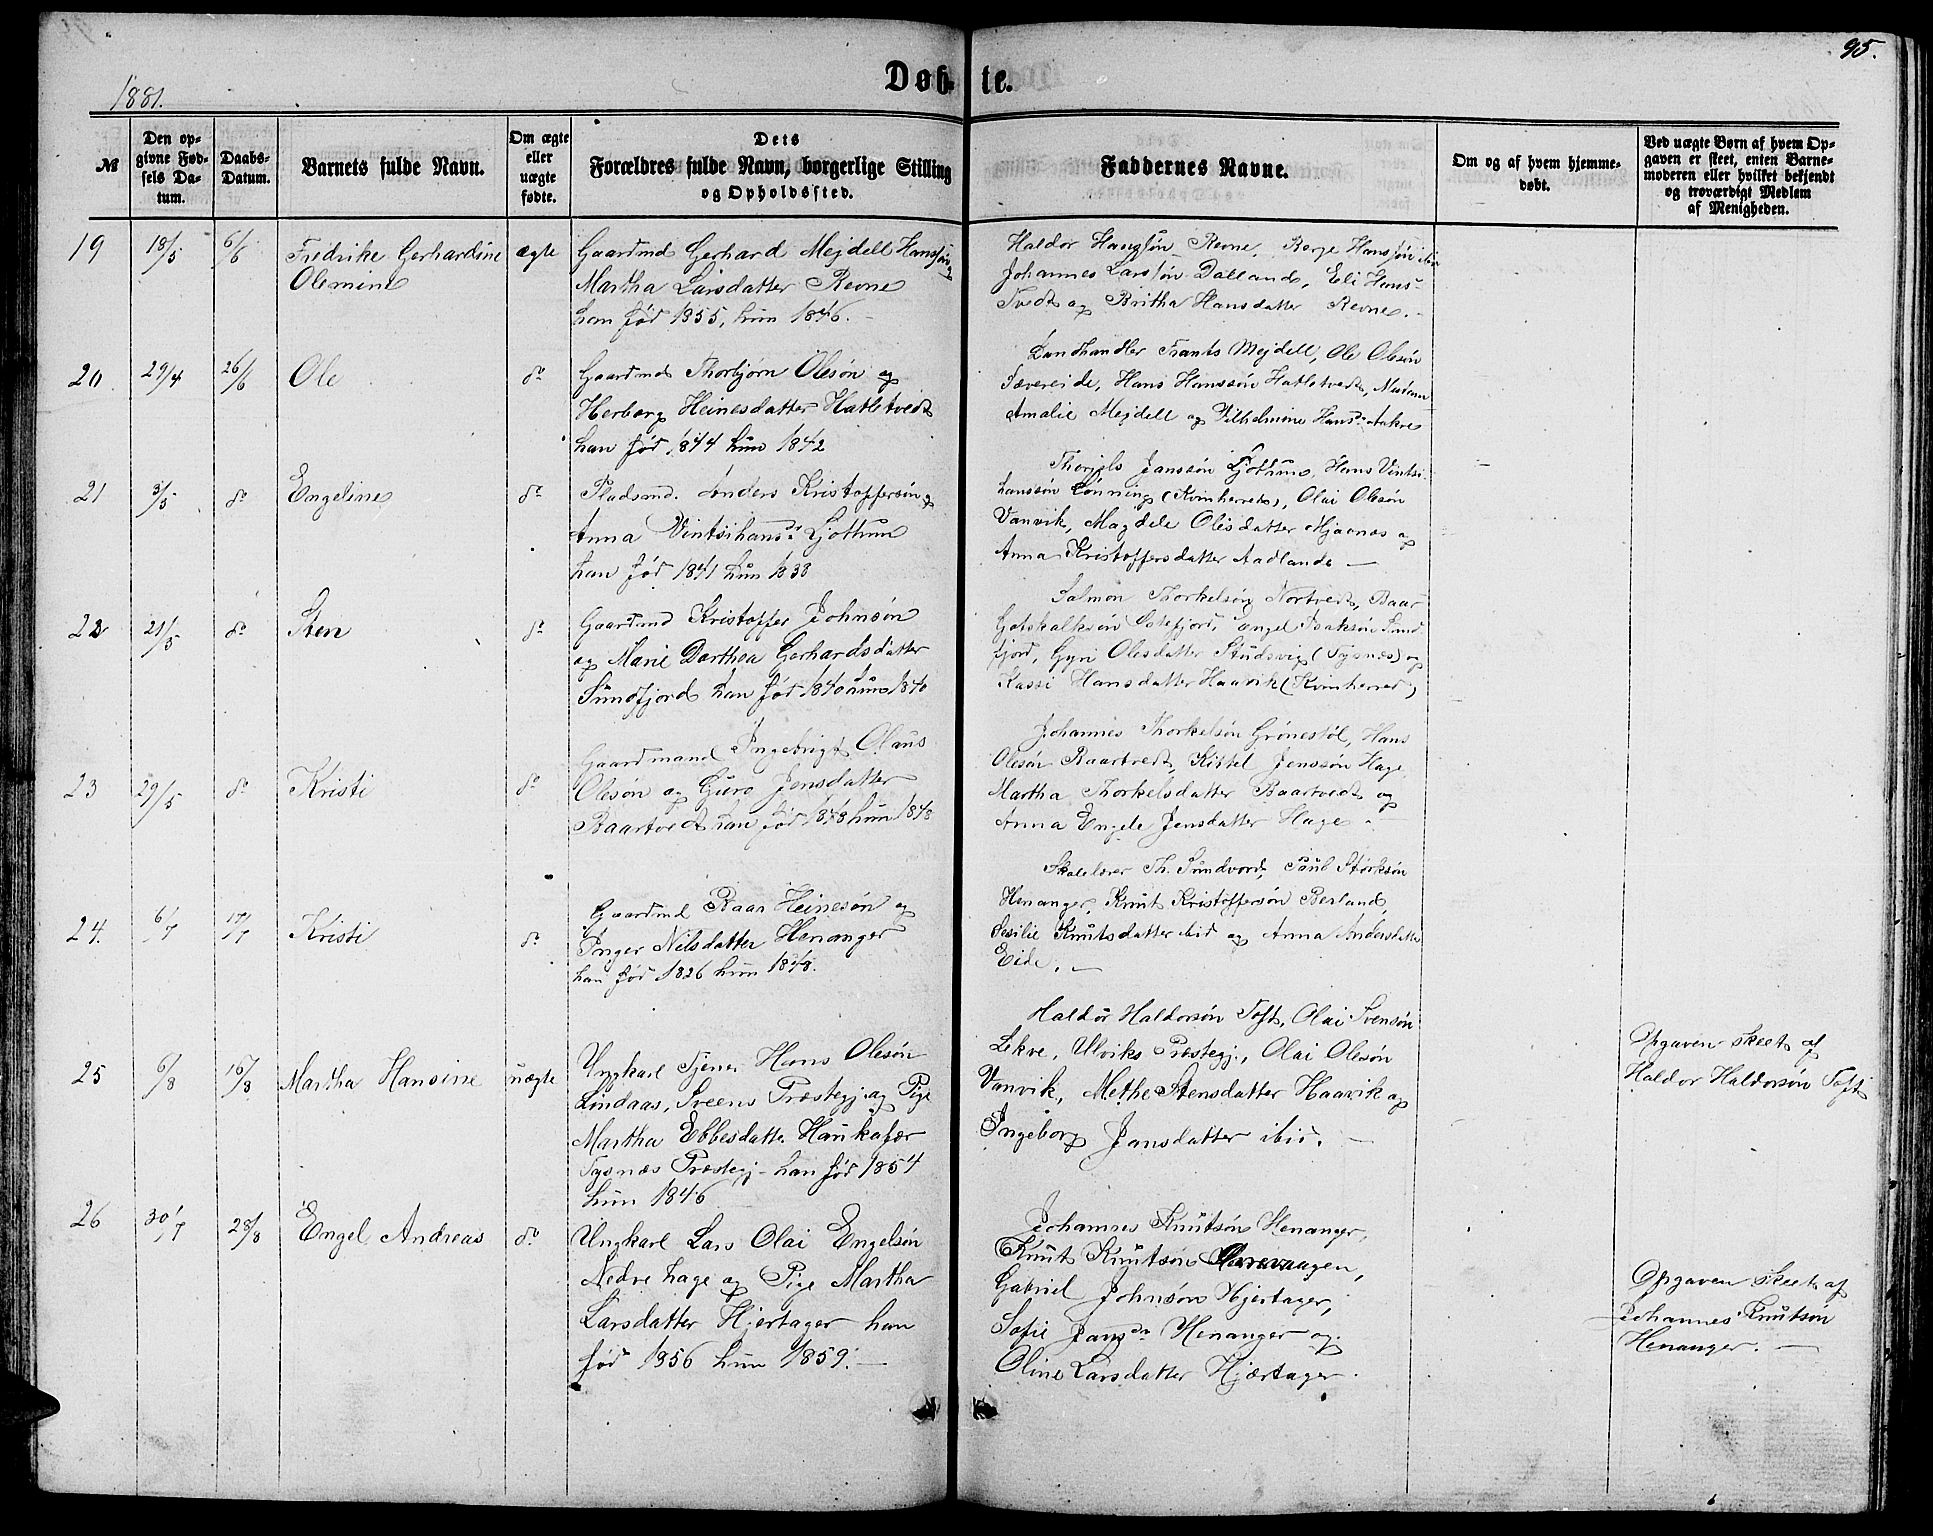 95.
1881.
Døbte.
№
Den opgivne Fødsels Datum.
Daabs-Datum.
Barnets fulde Navn.
Om ægte eller uægte fødte.
Dets Forældres fulde Navn, borgerlige Stilling og Opholdssted.
Faddernes Navne.
Om og af hvem hjemmedøbt.
Ved uægte Børn af hvem Opgaven er skeet, enten Barnemoderen eller hvilket bekjendt og troværdigt Medlem af Menigheden.
19
18/5
6/6
Fredrike Gerhardine
Olemine
ægte
Gaardmd Gerhard Mejdell Hanssøn og
Martha Larsdatter Revne
han fød 1855, hun 1846.
Haldor Hanssøn Revne, Børge Hanssøn ibid
Johannes Larssøn Dalland, Eli Hans-
Tvedt og Britha Hansdatter Revne.
20
29/4
26/6
Ole
do
Gaardmd Thorbjørn Olesøn og
Herborg Heinesdatter Hatletvedt
han fød 1844 hun 1842
Landhandler Frants Mejdell, Ole Olesøn
Sævereide, Hans Hanssøn Hatletvedt, Madam
Amalie Mejdell og Vilhelmine Hansdr Aakre
21
3/5
do
Engeline
do
Pladsmd. Anders Kristoffersøn og
Anna Vintsihansdr Ljothun
han fød 1841 hun 1838
Thorjels Janssøn Ljothun, Hans Vintsi-
hanssøn Lønning (Kvinherred), Olai Olesøn
Vanvik, Magdele Olesdatter Mjaanæs og
Anna Kristoffersdatter Aadland —
22
21/5
do
Sten
do
Gaardmd Kristoffer Johnsøn
og Marie Dorthea Gerhardsdatter
Sundfjord han fød 1840 hun 1840
Salmon Thorkelsøn Nortvedt, Baar
Gotskalksøn Østefjord, Engel Isaksøn Sund-
fjord, Gyri Olesdatter Studsvig (Tysnæs) og
Kassi Hansdatter Haavik (Kvinherred)
23
29/5
do
Kristi
do
Gaardmand Ingebrigt Olaus
Olesøn og Guro Jensdatter
Baartvedt han fød 1848 hun 1848
Johannes Thorkelsøn Grønestøl, Hans
Olesøn Baartvedt, Kittel Jenssøn Hage,
Martha Thorkelsdatter Baartvedt og
Anna Engele Jensdatter Hage. —
24.
6/7
17/7
Kristi
do
Gaardmd Baar Heinesøn og
Inger Nilsdatter Henanger
han fød 1826 hun 1848.
Skolelærer Th. Sundvord, Paul Størksøn
Henanger, Knut Kristoffersøn Berland,
Sesilie Knutsdatter ibid og Anna Andersdatter
Eide. —
25
6/8
16/8
Martha Hansine
uægte
Ungkarl Tjener Hans Olesøn
Lindaas, Sveens Præstegj. og Pige
Martha Ebbesdatter Haukafær
Tysnæs Præstegj. han fød 1854
hun 1846
Haldor Haldorsøn Toft, Olai Svensøn
Lekve, Ulviks Præstegj., Olai Olesøn
Vanvik, Methe Stensdatter Haavik og
Ingeborg Jansdatter ibid. —
Opgaven skeet af
Haldor Haldorsøn Toft
26
30/7
28/8
Engel Andreas
do
Ungkarl Lars Olai Engelsøn
Nedre Hage og Pige Martha
Larsdatter Hjertager han
fød 1856 hun 1859. —
Johannes Knutsøn Henanger,
Knut Knutsøn
Gabriel Johnsøn Hjertager,
Sofie Jansdr Henanger og
Oline Larsdatter Hjærtager.
Opgaven skeet af
Johannes Knutsøn
Henanger. —